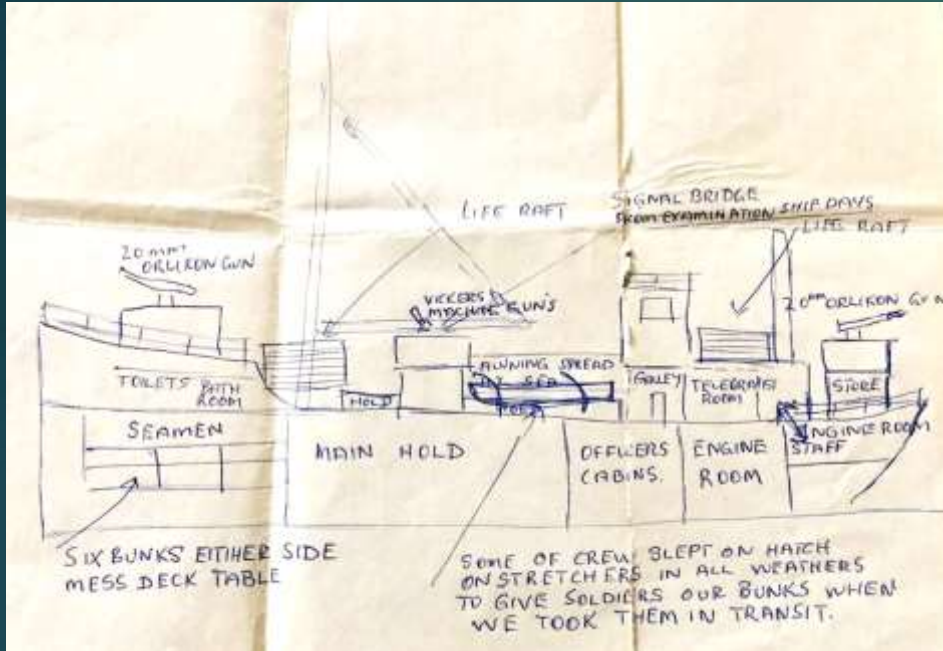 LIFE RAFT
SIGNAL BRIDGE
FROM EXAMINATION SHIP DAYS
LIFE RAFT
20 MM
ORLIKON GUN
VICKERS
MACHINE GUN'S
20MM ORLIKON GUN
AWNING SPREAD
TOILETS BATH
ROOM
HOLD
GALLEY
TELEGRAPHIST
ROOM
STORE
SEAMEN
MAIN HOLD
OFFICERS
CABINS.
ENGINE
ROOM
ENGINE ROOM
STAFF
SIX BUNKS EITHER SIDE
MESS DECK TABLE
SOME OF CREW SLEPT ON HATCH
ON STRETCHERS IN ALL WEATHERS
TO GIVE SOLDIERS OUR BUNKS WHEN
WE TOOK THEM IN TRANSIT.